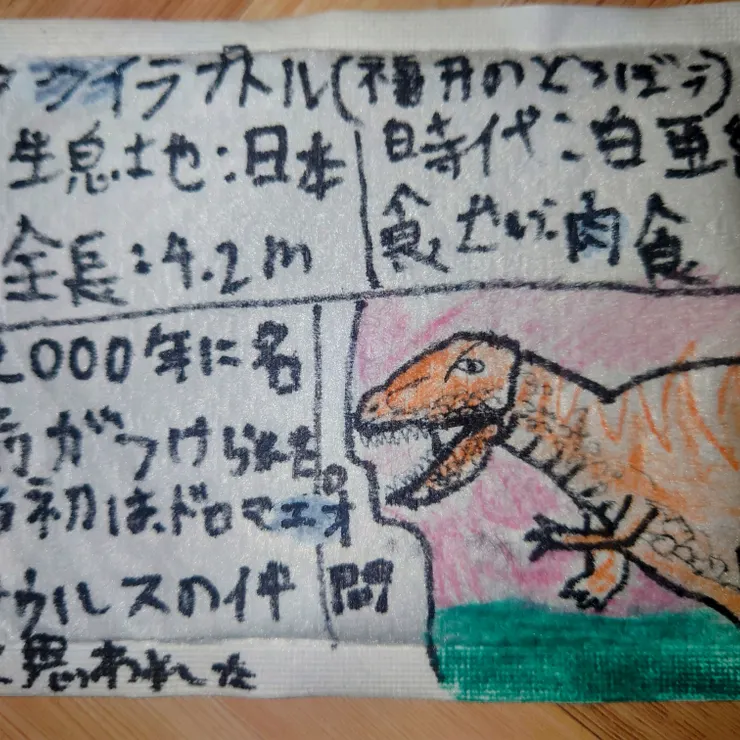 フクイラプトル(福井のどろぼう)
生息地:日本
時代:白亜
全長:4.2m
食せい:肉食
2000年に名
前がつけられた。
当初は、ドロマエオ
サウルスの仲問
と思われました